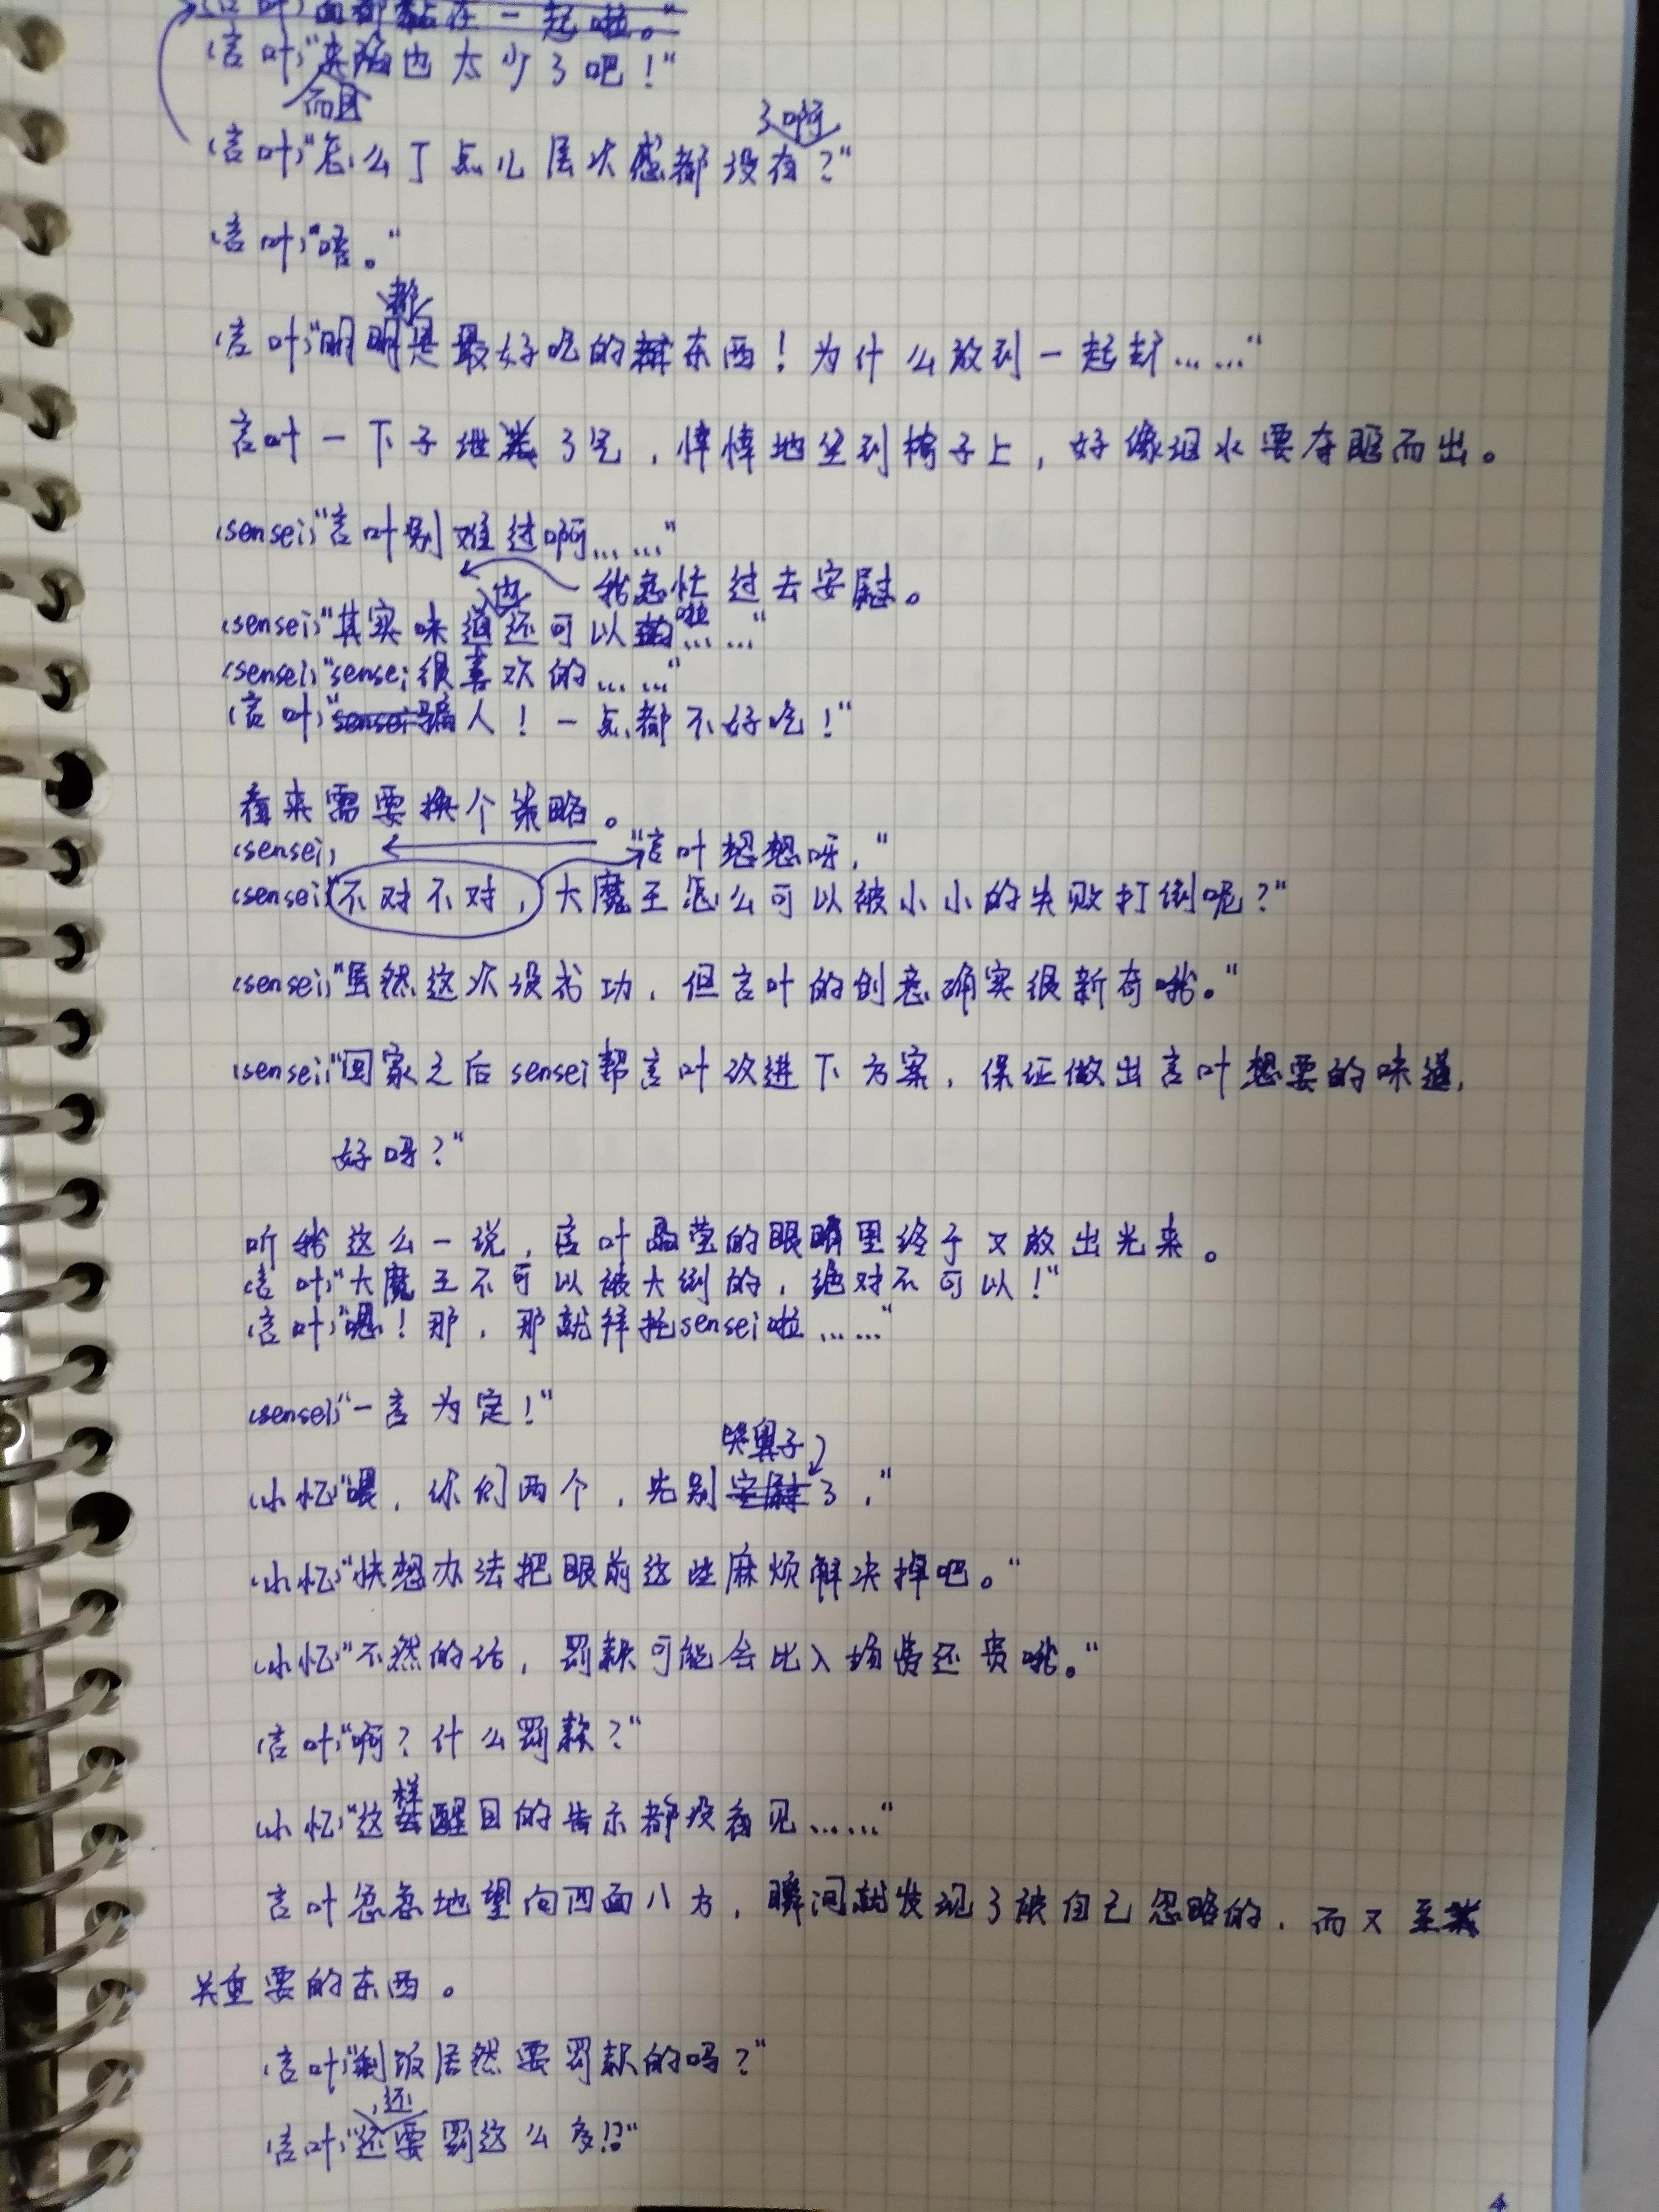 (言叶)"面都黏在一起啦。"
(言叶)"夹馅也太少了吧！"
而且
了啊
(言叶)"怎么一点儿层次感都没有？"
(言叶)"唔。"
都
(言叶)"明明是最好吃的东西！为什么放到一起却……"
言叶一下子泄了气，悻悻地坐到椅子上，好像泪水要夺眶而出。
(sensei)"言叶别难过啊……"
我急忙过去安慰。
也 啦
(sensei)"其实味道还可以……"
(sensei)"sensei很喜欢的……"
(言叶)"sensei骗人！一点都不好吃！"
看来需要换个策略。
(sensei) "言叶想想呀，"
(sensei)"不对不对，大魔王怎么可以被小小的失败打倒呢？"
(sensei)"虽然这次没成功，但言叶的创意确实很新奇哦。"
(sensei)"回家之后sensei帮言叶改进下方案，保证做出言叶想要的味道，
好吗？"
听我这么一说，言叶晶莹的眼眸里终于又放出光来。
(言叶)"大魔王不可以被大倒的，绝对不可以！"
(言叶)"嗯！那，那就拜托sensei啦……"
(sensei)"一言为定！"
哭鼻子
(小忆)"喂，你们两个，先别安慰了，"
(小忆)"快想办法把眼前这些麻烦解决掉吧。"
(小忆)"不然的话，罚款可能会比入场费还贵哦。"
(言叶)"啊？什么罚款？"
样
(小忆)"这么醒目的告示都没看见……"
言叶忽忽地望向四面八方，瞬间就发现了被自己忽略的，而又至
关重要的东西。
(言叶)"剩饭居然要罚款的吗？"
，还
(言叶)"还要罚这么多!?"